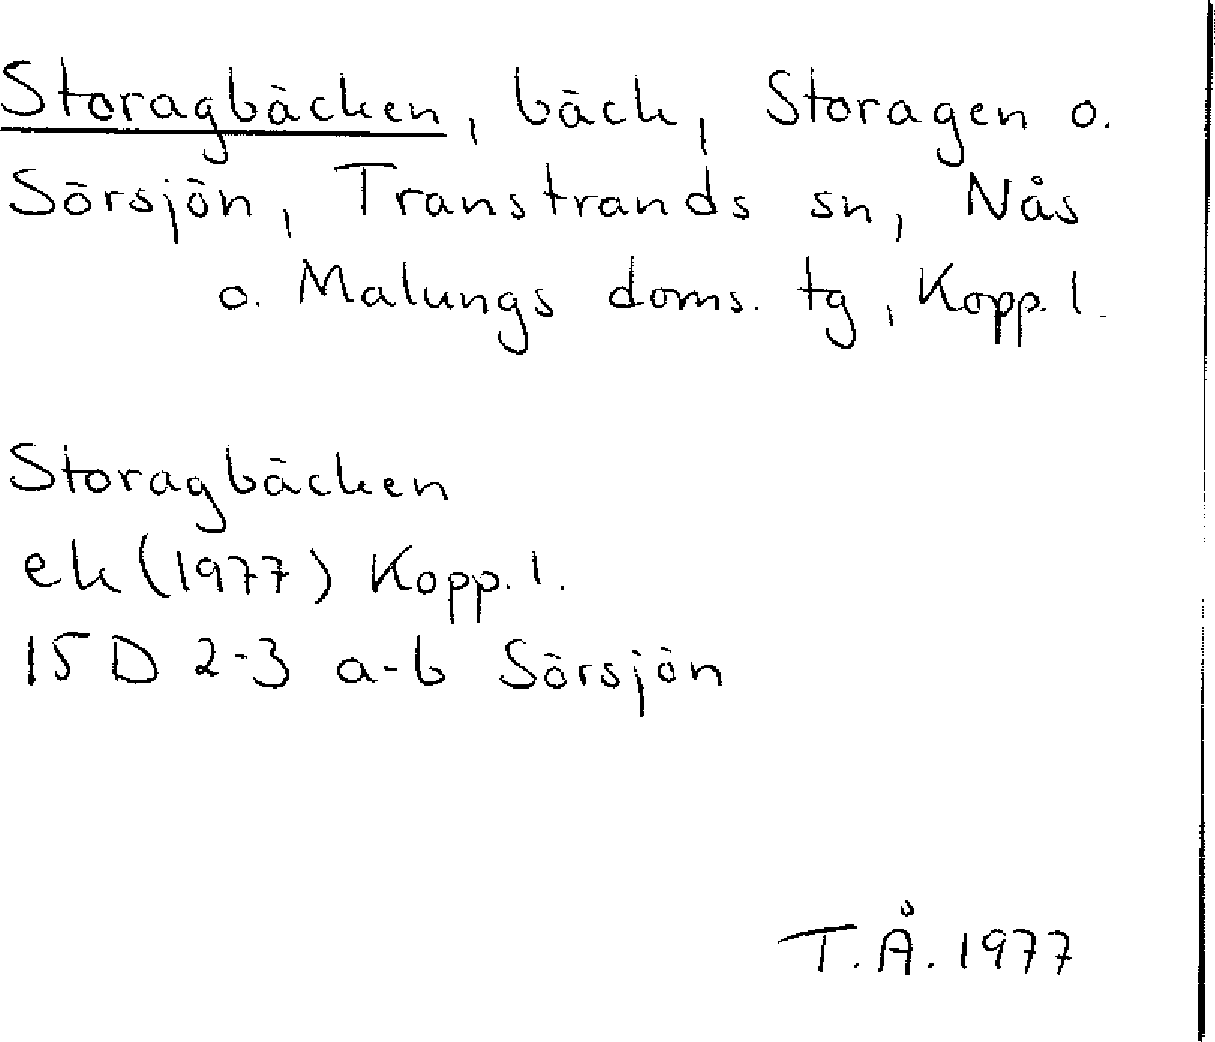 Storagbäcken, bäck, Storagen o.
Sörsjön, Transtrands sn, Nås
o. Malungs doms. tg, Kopp. l.
Storagbäcken
ek (1977) Kopp. l.
15 D 2-3 a-b Sörsjön
T.Å. 1977